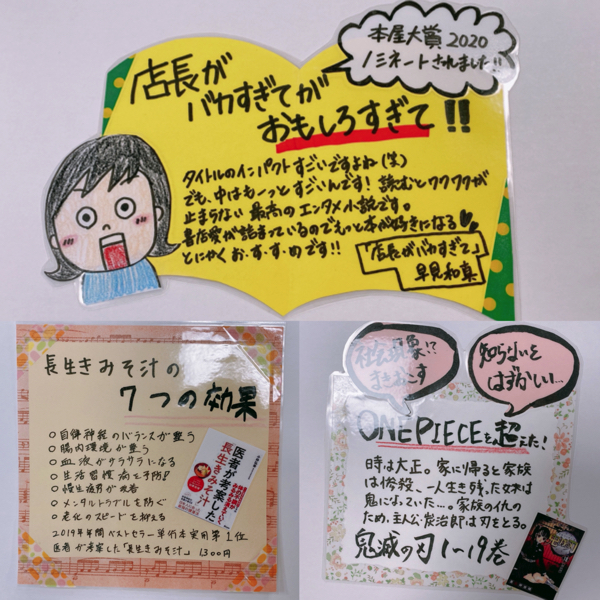 本屋大賞2020
ノミネートされました!!
店長が
バカすぎてが
おもしろすぎて!!
タイトルのインパクトすごいですよね(笑)
でも、中はもーっとすごいんです!読むとワクワクが
止まらない最高のエンタメ小説です。
書店愛が詰まっているのでもっと本が好きになる♥
とにかくお・す・す・めです!!
「店長がバカすぎて」
早見和真
長生きみそ汁の
7つの効果
○自律神経のバランスが整う
○腸内環境が整う
○血液がサラサラになる
○生活習慣病を予防!
○慢性疲労が改善
○メンタルトラブルを防ぐ
○老化のスピードを抑える
2019年年間ベストセラー単行本実用第1位
医者が考案した「長生きみそ汁」 1300円
医者が考案した
長生きみそ汁
社会現象!?
まきおこす
知らないと
はずかしい…
ONE PIECEを超えた!
時は大正。家に帰ると家族
は惨殺、一人生き残った妹は
鬼になっていた…。家族の仇の
ため、主人公・炭治郎は刃をとる。
鬼滅の刃1〜19巻